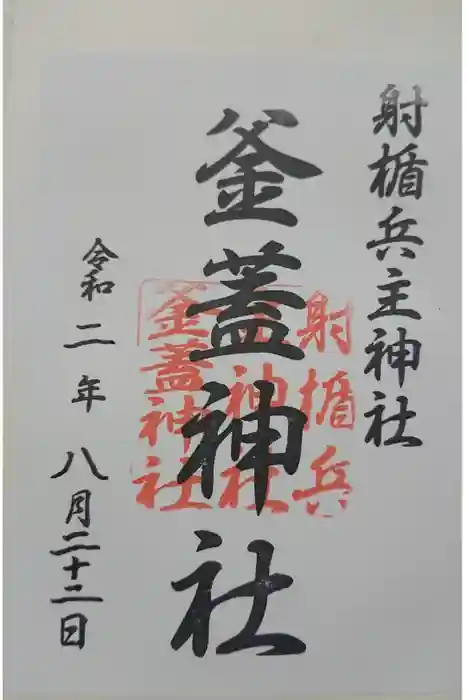 射楯兵主神社
釜蓋神社
令和二年八月二十二日
射楯兵
主神社
釜蓋神社